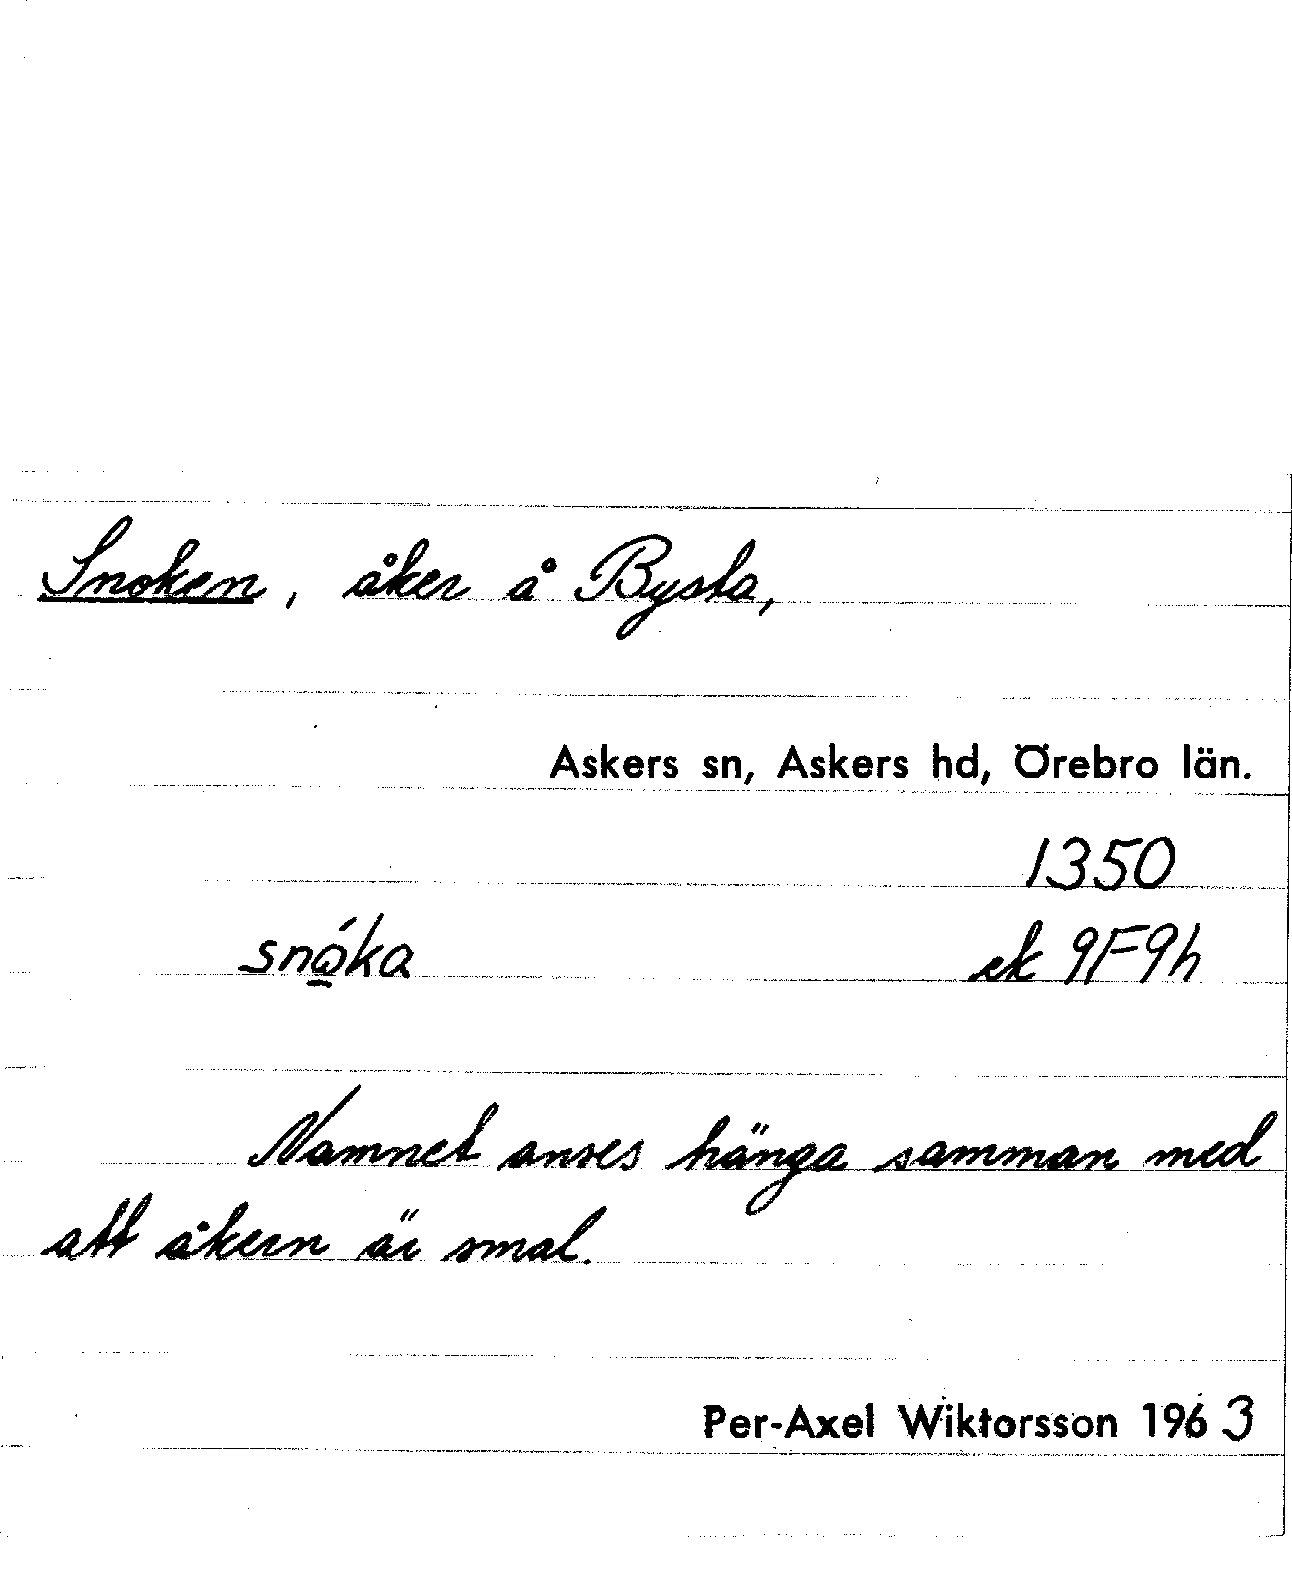 Snoken, åker å Bysta,
Askers sn, Askers hd, Örebro län.
1350
sno̱̊́ka ek 9F9h
Namnet anses hänga samman med
att åkern är smal.
Per-Axel Wiktorsson 1963